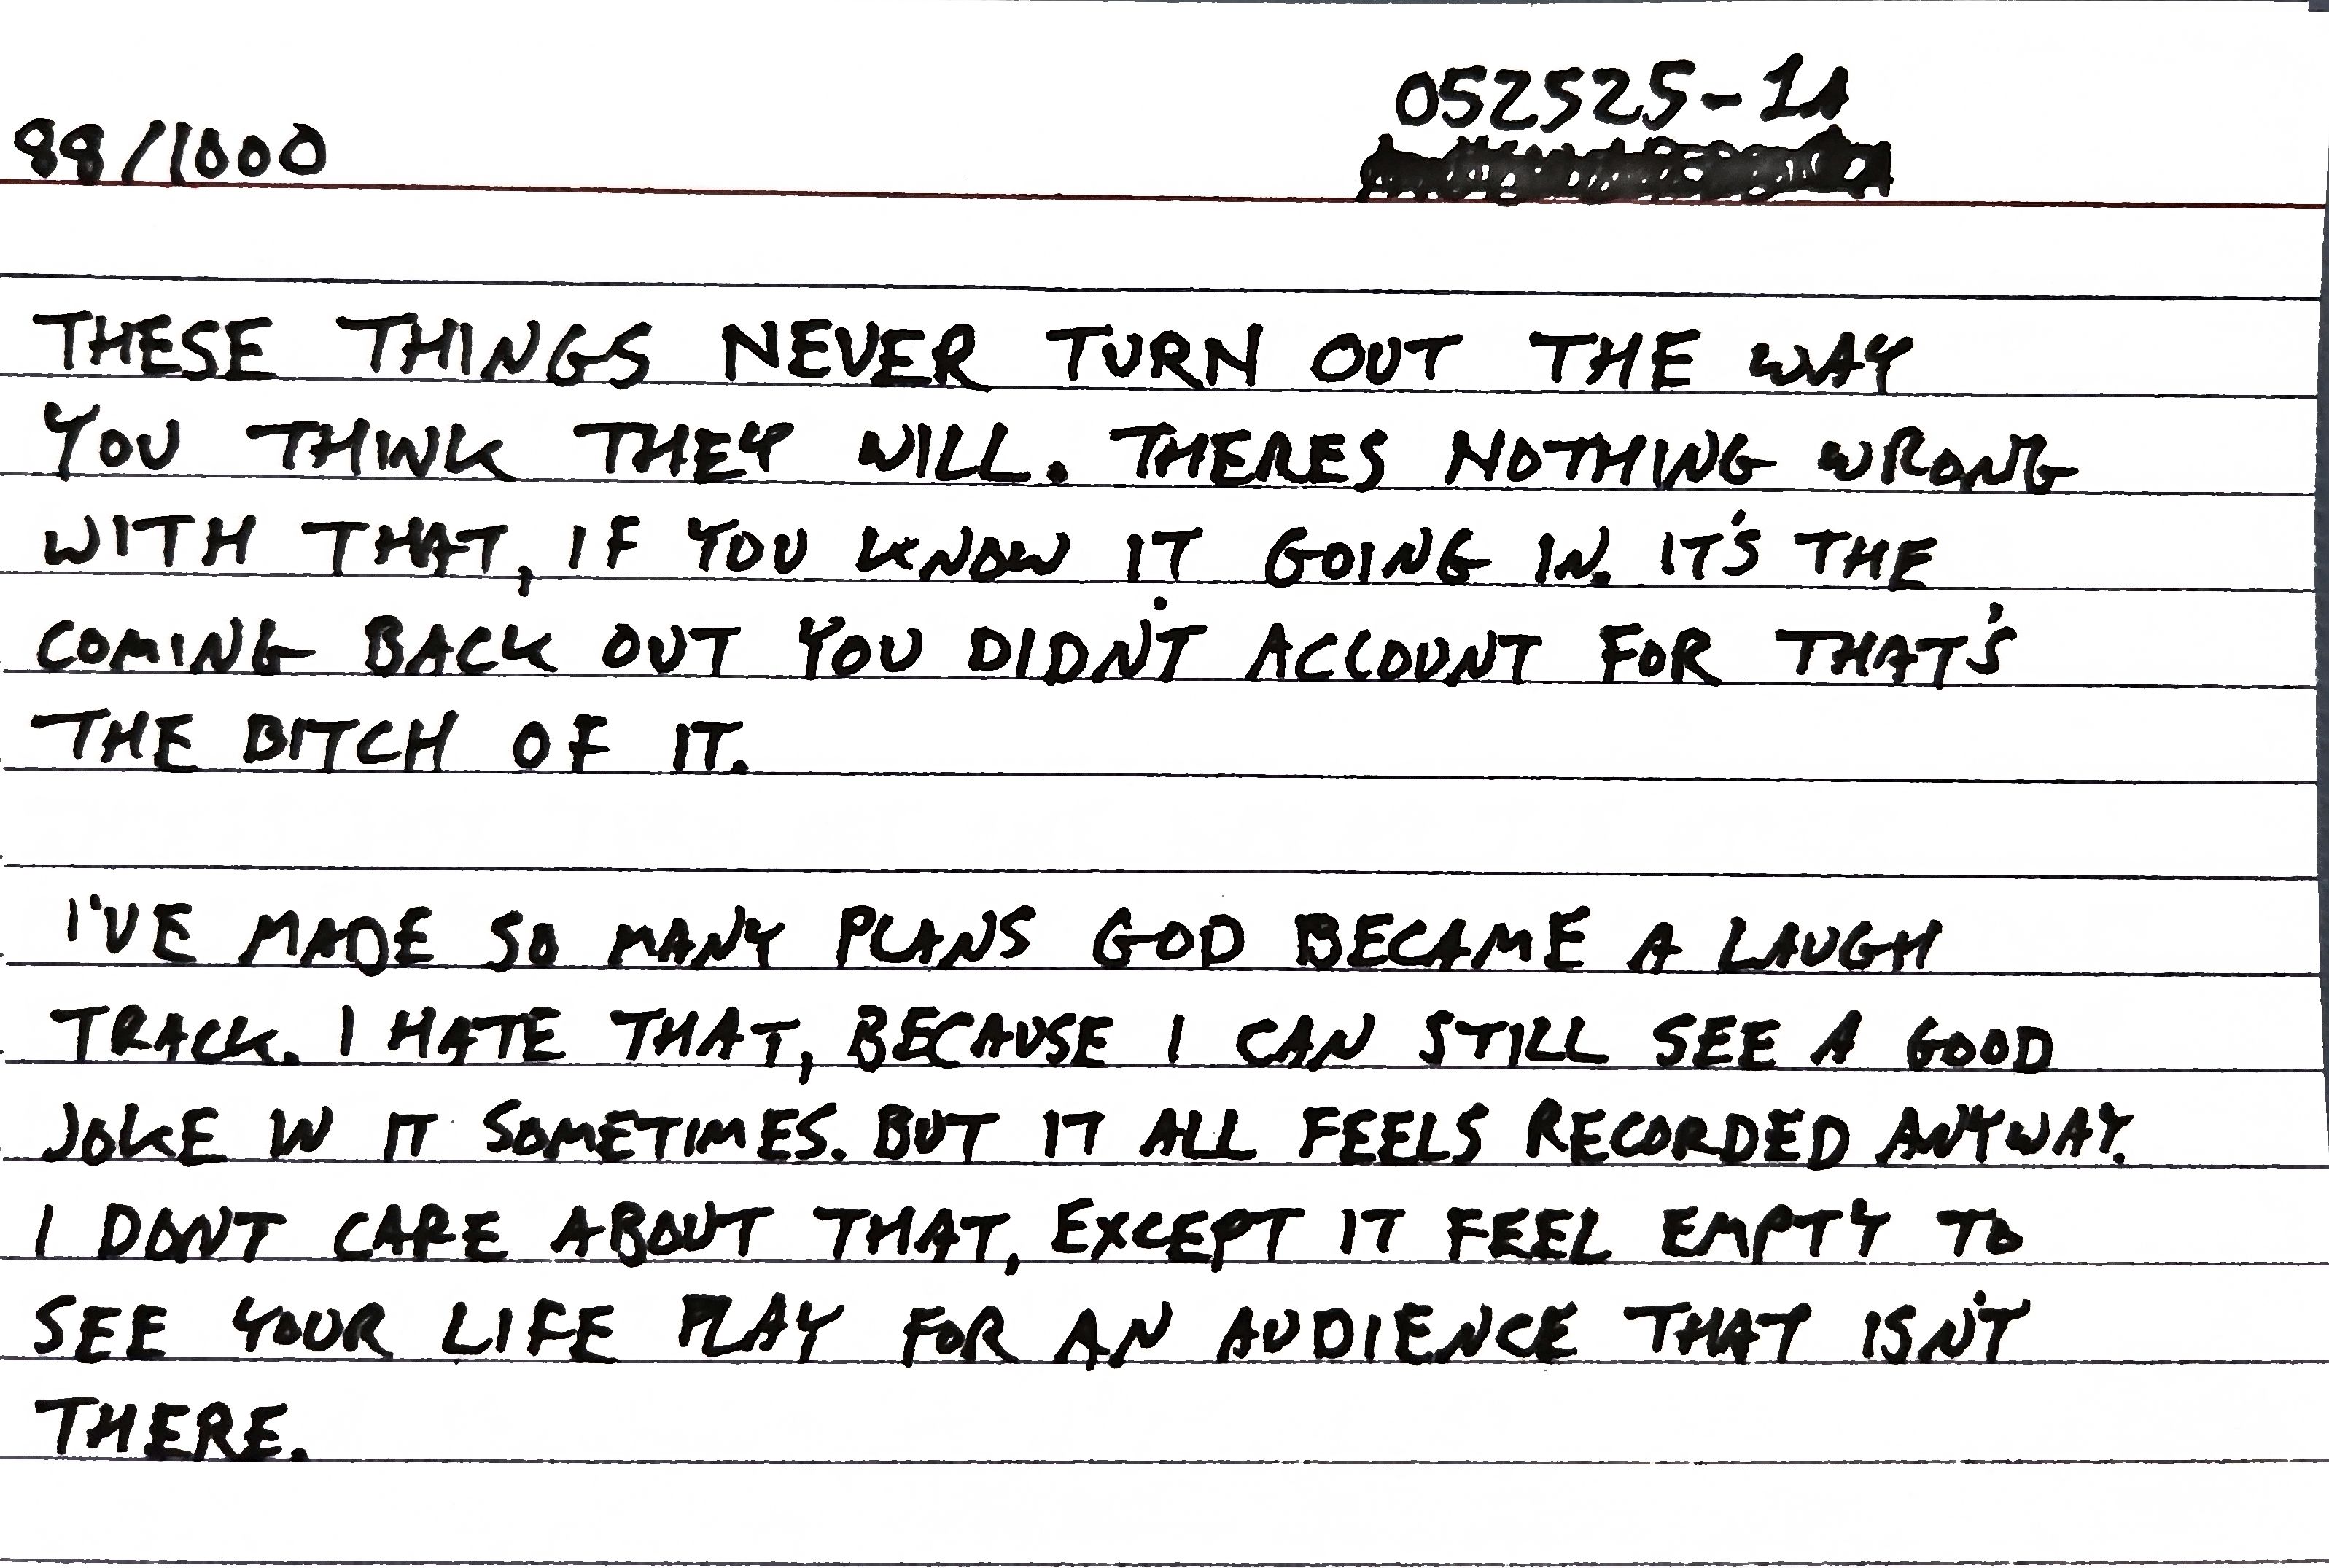 052525-11
88/1000
THESE THINGS NEVER TURN OUT THE WAY
YOU THINK THEY WILL. THERES NOTHING WRONG
WITH THAT, IF YOU KNOW IT GOING IN. IT'S THE
COMING BACK OUT YOU DIDN'T ACCOUNT FOR THAT'S
THE BITCH OF IT.
I'VE MADE SO MANY PLANS GOD BECAME A LAUGH
TRACK. I HATE THAT, BECAUSE I CAN STILL SEE A GOOD
JOKE IN IT SOMETIMES. BUT IT ALL FEELS RECORDED ANYWAY.
I DONT CARE ABOUT THAT, EXCEPT IT FEEL EMPTY TO
SEE YOUR LIFE PLAY FOR AN AUDIENCE THAT ISN'T
THERE.